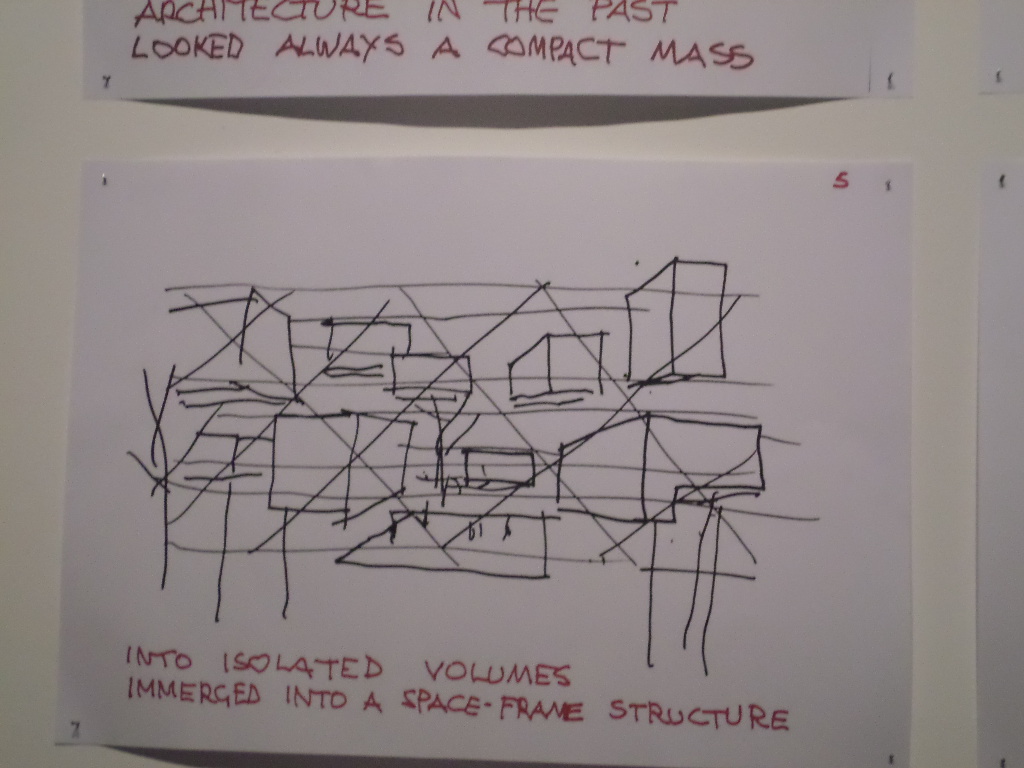 ARCHITECTURE IN THE PAST
LOOKED ALWAYS A COMPACT MASS
5
INTO ISOLATED VOLUMES
IMMERGED INTO A SPACE-FRAME STRUCTURE